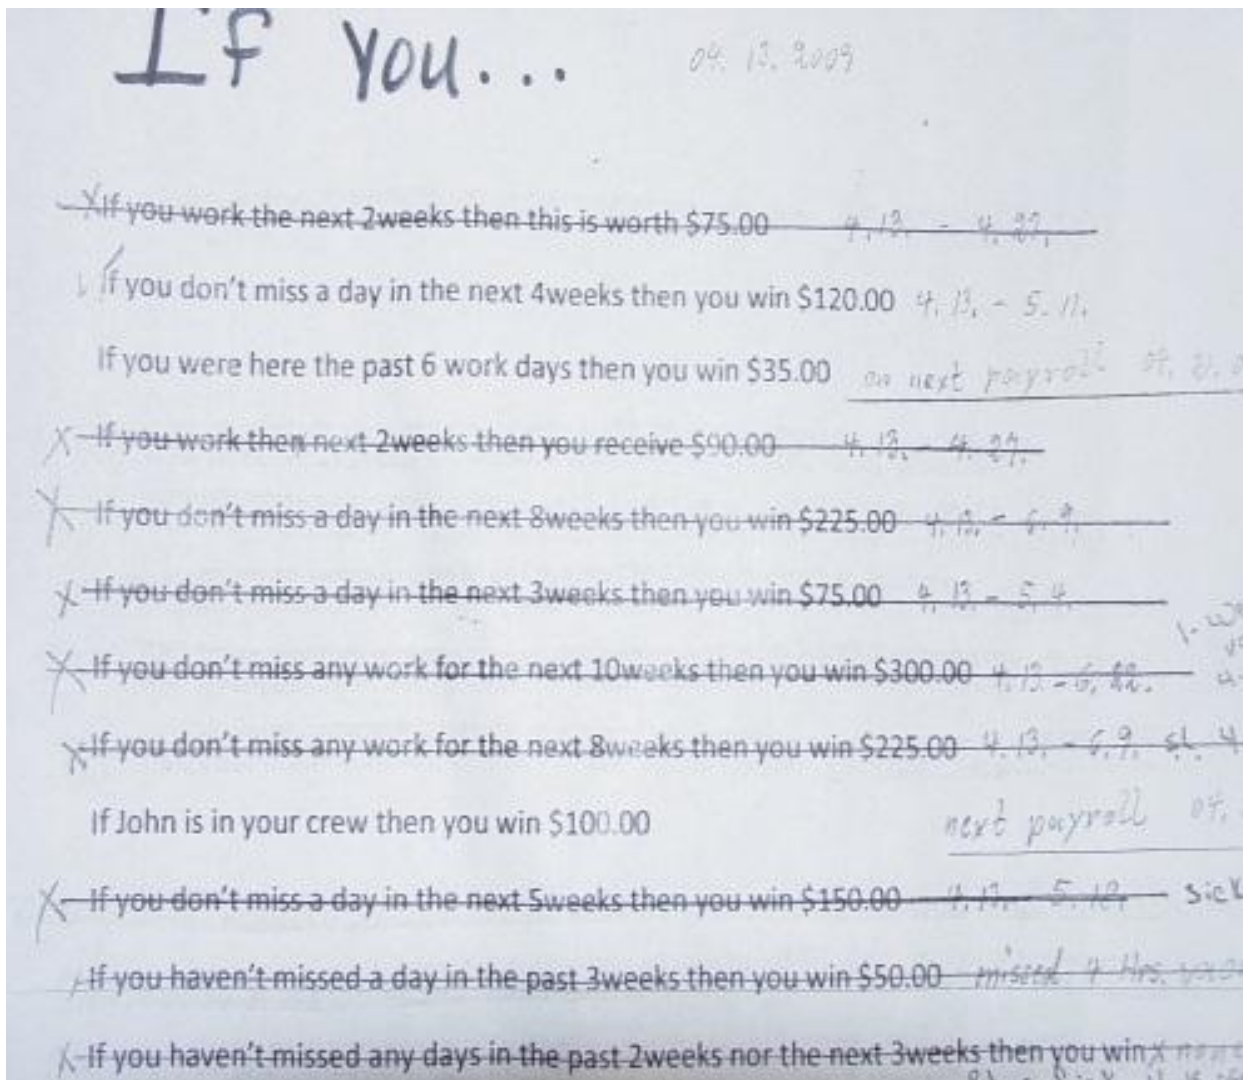 If You... 04. 13. 2009
X If you work the next 2weeks then this is worth $75.00 4.13. - 4.27.
If you don't miss a day in the next 4weeks then you win $120.00 4.13. - 5.11.
If you were here the past 6 work days then you win $35.00 on next payroll 04.
X If you work then next 2weeks then you receive $90.00 4.13. - 4.27.
X If you don't miss a day in the next 8weeks then you win $225.00 4.13. - 6.9.
X If you don't miss a day in the next 3weeks then you win $75.00 4.13 - 5.4.
X If you don't miss any work for the next 10weeks then you win $300.00 4.13 - 6.22.
X If you don't miss any work for the next 8weeks then you win $225.00 4.13. - 6.9.
If John is in your crew then you win $100.00 next payroll 04.
X If you don't miss a day in the next 5weeks then you win $150.00 sick
If you haven't missed a day in the past 3weeks then you win $50.00 missed 7 Hrs.
X If you haven't missed any days in the past 2weeks nor the next 3weeks then you win